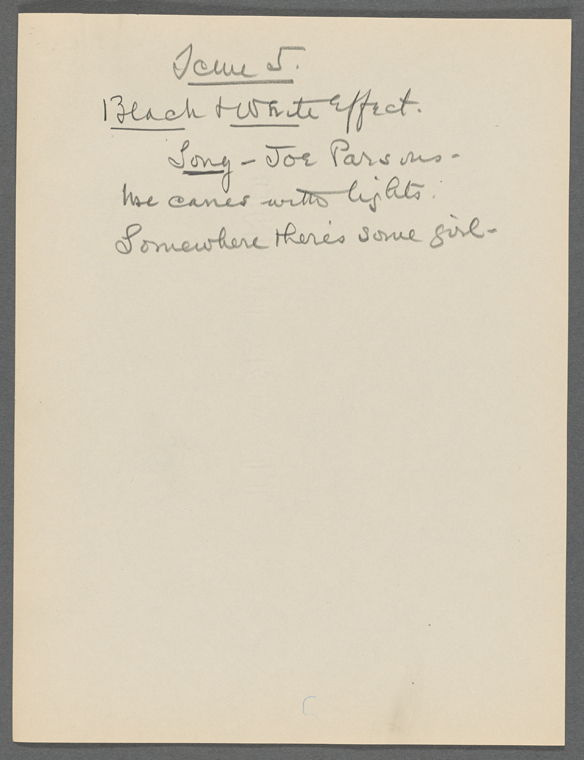 Scene 5.
Black & White Effect.
Song - Joe Parsons -
Use canes with lights.
Somewhere there's some girl -